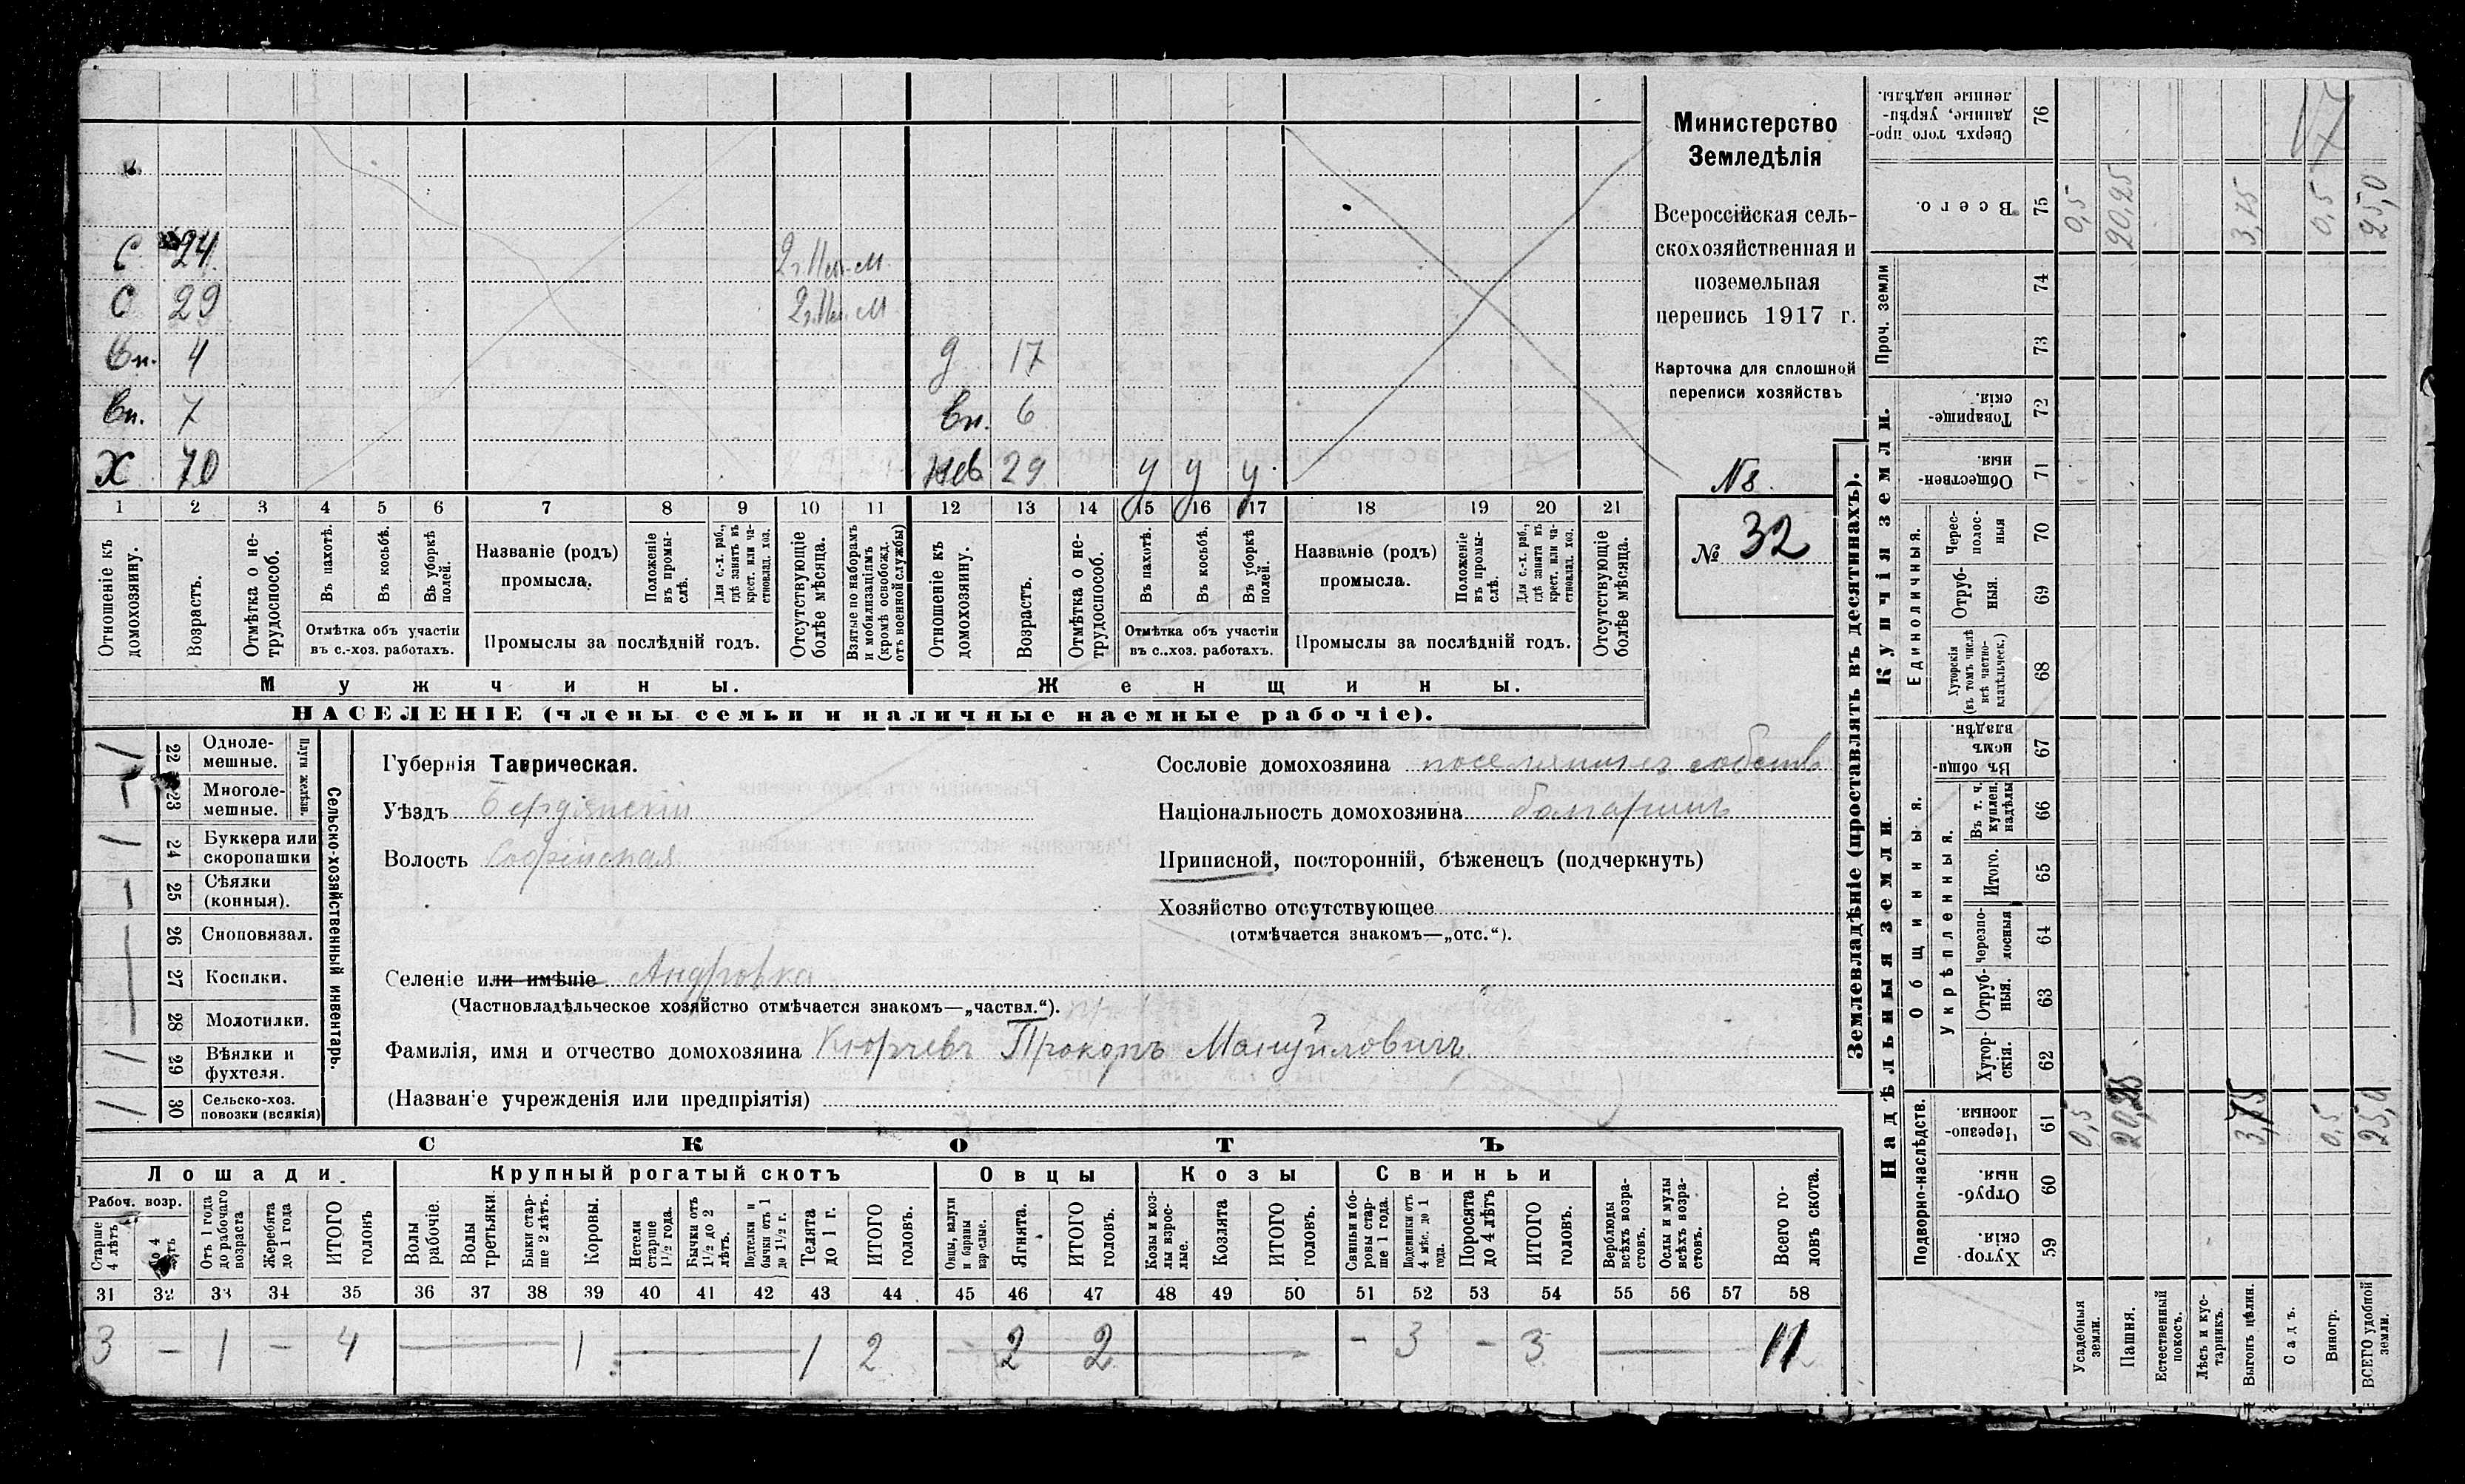 С 24 2 г. м.
С 29 2 г. м.
Вн. 4 д 17
Вн. 7 Вн. 6
Х 70 Нев 29 у у у
1 2 3 4 5 6 7 8 9 10 11 12 13 14 15 16 17 18 19 20 21
Отношеніе къ домохозяину.
Возрастъ.
Отмѣтка о не-
трудоспособ.
Въ пахотѣ.
Въ косьбѣ.
Въ уборкѣ
полей.
Отмѣтка объ участіи
въ с.-хоз. работахъ.
Названіе (родъ)
промысла.
Положеніе
въ промы-
слѣ.
Для с.-х. раб.,
гдѣ занятъ въ
крест. или ча-
стновлад. хоз.
Промыслы за послѣдній годъ.
Отсутствующіе
болѣе мѣсяца.
Взятые по наборамъ
и мобилизаціямъ
(кромѣ освобожд.
отъ военной службы)
Отношеніе къ
домохозяину.
Возрастъ.
Отмѣтка о не-
трудоспособ.
Въ пахотѣ.
Въ косьбѣ.
Въ уборкѣ
полей.
Отмѣтка объ участіи
въ с..хоз. работахъ.
Названіе (родъ)
промысла.
Положеніе
въ промы-
слѣ.
Для с.-х. раб.,
гдѣ занята въ
крест. или ча-
стновлад. хоз.
Промыслы за послѣдній годъ.
Отсутствующіе
болѣе мѣсяца.
Мужчины.
Женщины.
НАСЕЛЕНІЕ (члены семьи и наличные наемные рабочіе).
Министерство
Земледѣлія
Всероссійская сель-
скохозяйственная и
поземельная
перепись 1917 г.
Карточка для сплошной
переписи хозяйствъ
№ 32
22 Одноле-
мешные.
23 Многоле-
мешные.
Плуги желѣзн.
24 Буккера или
скоропашки
25 Сѣялки
(конныя).
26 Сноповязал.
27 Косилки.
28 Молотилки.
29 Вѣялки и
фухтеля.
30 Сельско-хоз.
повозки (всякія)
Сельско-хозяйственный инвентарь.
Губернія Таврическая.
Уѣздъ Бердянскій
Волость Софіевская
Селеніе или имѣніе Андровка
(Частновладѣльческое хозяйство отмѣчается знакомъ—„частвл.“).
Фамилія, имя и отчество домохозяина Кюрчевъ Прокопъ Мануиловичъ
(Названіе учрежденія или предпріятія)
Сословіе домохозяина поселянинъ собств
Національность домохозяина болгаринъ
Приписной, посторонній, бѣженецъ (подчеркнуть)
Хозяйство отсутствующее
(отмѣчается знакомъ—„отс.“).
СКОТЪ
Лошади.
Крупный рогатый скотъ
Овцы
Козы
Свиньи
Рабоч. возр.
Старше
4 лѣтъ.
До 4
лѣтъ
Отъ 1 года
до рабочаго
возраста
Жеребята
до 1 года
ИТОГО
головъ
Волы
рабочіе.
Волы
третьяки.
Быки стар-
ше 2 лѣтъ.
Коровы.
Нетели
старше
1 1/2 года.
Бычки отъ
1 1/2 до 2
лѣтъ.
Подтелки и
бычки отъ 1
до 1 1/2 г.
Телята
до 1 г.
ИТОГО
головъ.
Овцы, валухи
и бараны
взрослые.
Ягнята.
ИТОГО
головъ.
Козы и коз-
лы взрос-
лые.
Козлята
ИТОГО
головъ.
Свиньи и бо-
ровы стар-
ше 1 года.
Подсвинки отъ
4 мѣс. до 1
года.
Поросята
до 4 лѣтъ
ИТОГО
головъ.
Верблюды
всѣхъ возра-
стовъ.
Ослы и мулы
всѣхъ возра-
стовъ.
Всего го-
ловъ скота.
31 32 33 34 35 36 37 38 39 40 41 42 43 44 45 46 47 48 49 50 51 52 53 54 55 56 57 58
3 — 1 — 4 — 1 — 1 2 - 2 2 — - 3 - 3 — 11
Землевладѣніе (проставлять въ десятинахъ).
Надѣльныя земли.
Купчія земли.
Подворно-наслѣдств.
Общинныя.
Укрѣпленныя.
Единоличныя.
Проч. земли
Сверхъ того про-
данные, укрѣп-
ленные надѣлы. 76 17
Всего. 75 0,5 20,25 3,75 0,5 25,0
74
73
Товарище-
скія. 72
Обществен-
ныя. 71
Черес-
полос-
ныя 70
Отруб-
ныя. 69
Хуторскія
(въ томъ числѣ
всѣ частно-
владѣльческ.) 68
Въ общин-
номъ
владѣн. 67
Въ т. ч.
куплен.
надѣлы 66
Итого. 65
черезпо-
лосныя 64
Отруб-
ныя. 63
Хутор-
скія. 62
Черезпо-
лосныя. 61 0,5 20,25 3,75 0,5 25,0
Отруб-
ныя. 60
Хутор-
скія. 59
Усадебныя
земли.
Пашня.
Естественный
покосъ.
Лѣсъ и кус-
тарникъ.
Выгонъ цѣлин.
Садъ.
Виногр.
ВСЕГО удобной
земли.